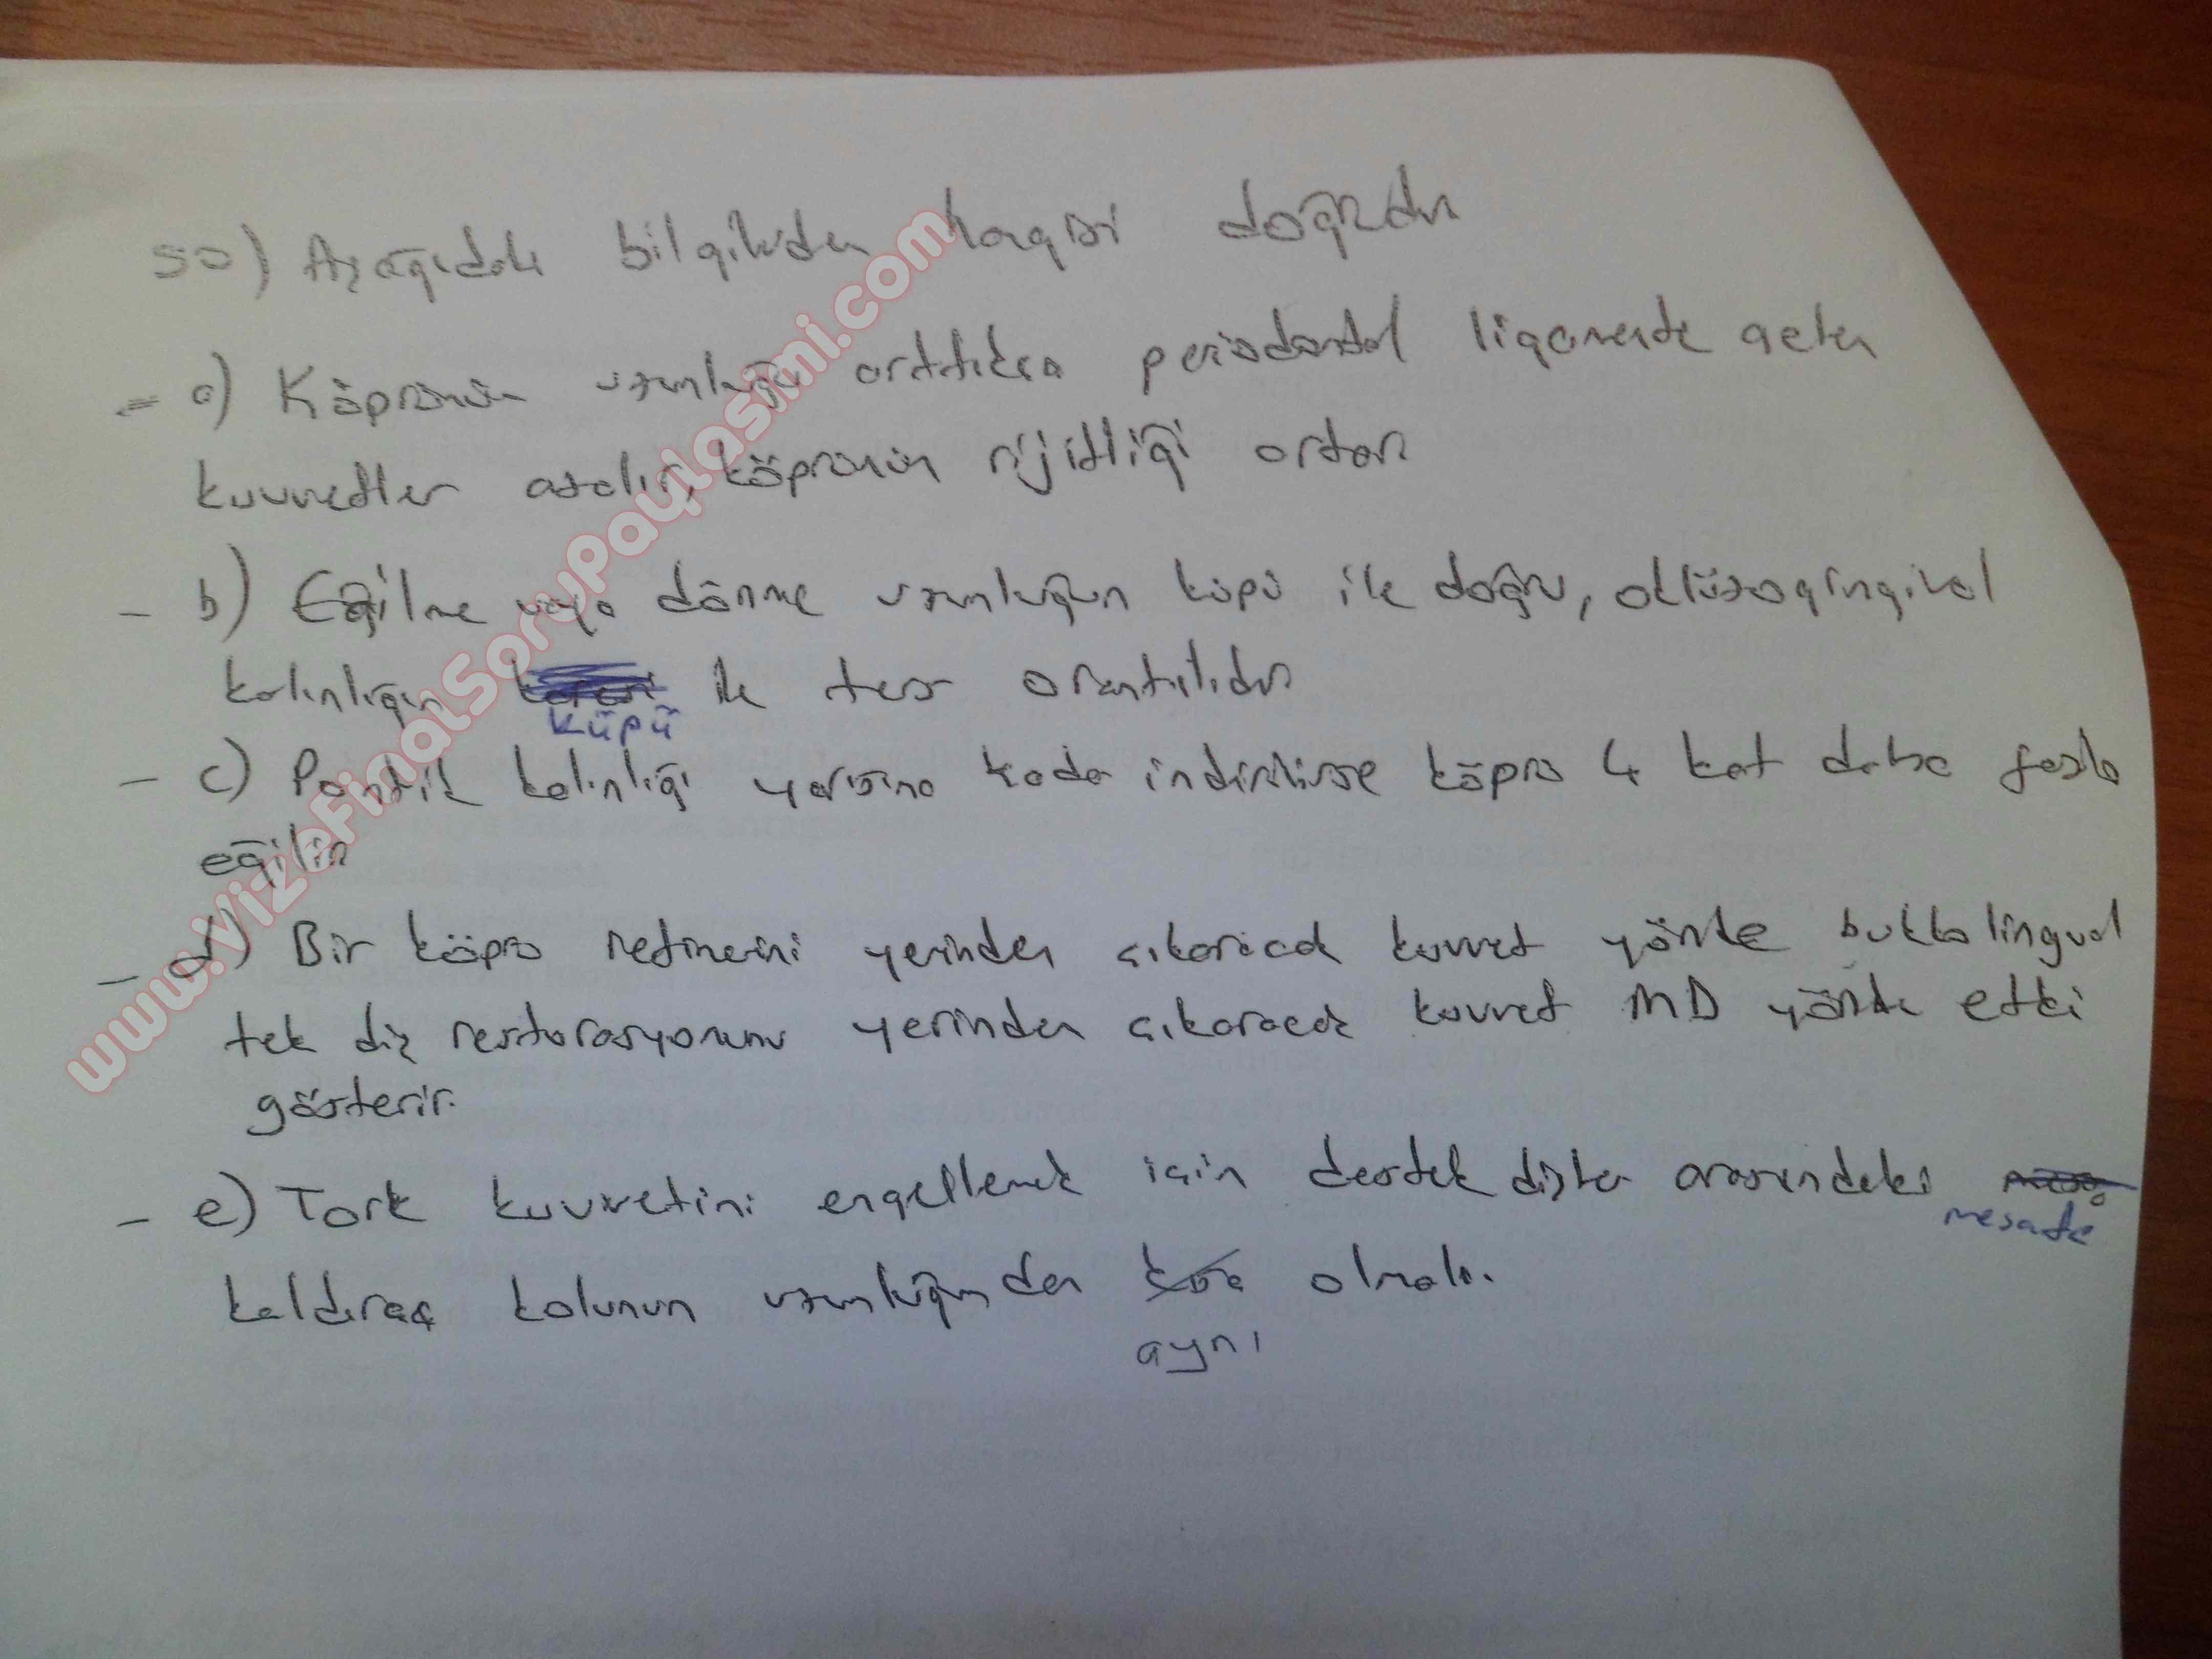 50) Aşağıdaki bilgilerden hangisi doğrudur
- a) Köprünün uzunluğu arttıkça periodontal ligamente gelen
kuvvetler azalır, köprünün rijitliği artar
- b) Eğilme veya dönme uzunluğun küpü ile doğru, oklüzogingival
kalınlığın küpü ile ters orantılıdır
- c) Pontik kalınlığı yarısına kadar indirilirse köprü 4 kat daha fazla
eğilir
- d) Bir köprü retinerini yerinden çıkaracak kuvvet yönde bukkolingual
tek diş restorasyonunu yerinden çıkaracak kuvvet MD yönde etki
gösterir.
- e) Tork kuvvetini engellemek için destek dişler arasındaki mesafe
kaldıraç kolunun uzunluğundan kısa olmalı.
aynı
www.VizeFinalSoruPaylasimi.com